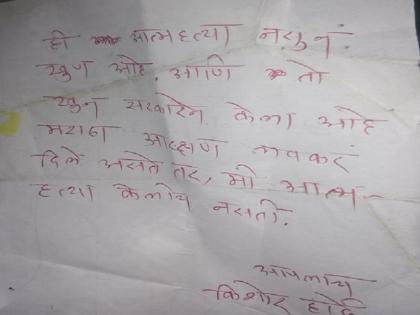 ही आत्महत्या नसुन
खुण आहे. आणि तो
खुन सरकारने केला आहे
मराठा आरक्षण लवकर
दिले असते तर, मी आत्म-
हत्या केलीच नसती.
आपलाच
किशोर